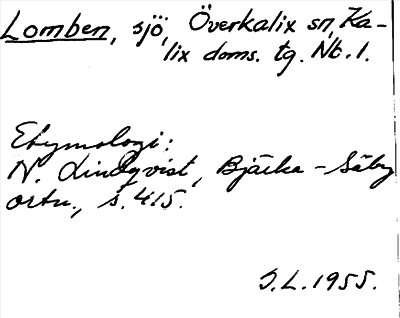 Lomben, sjö, Överkalix sn, Ka-
lix doms. tg. Nb. 1.
Etymologi:
N. Lindqvist, Bjärka-Säby
ortn., s. 415.
S.L. 1955.